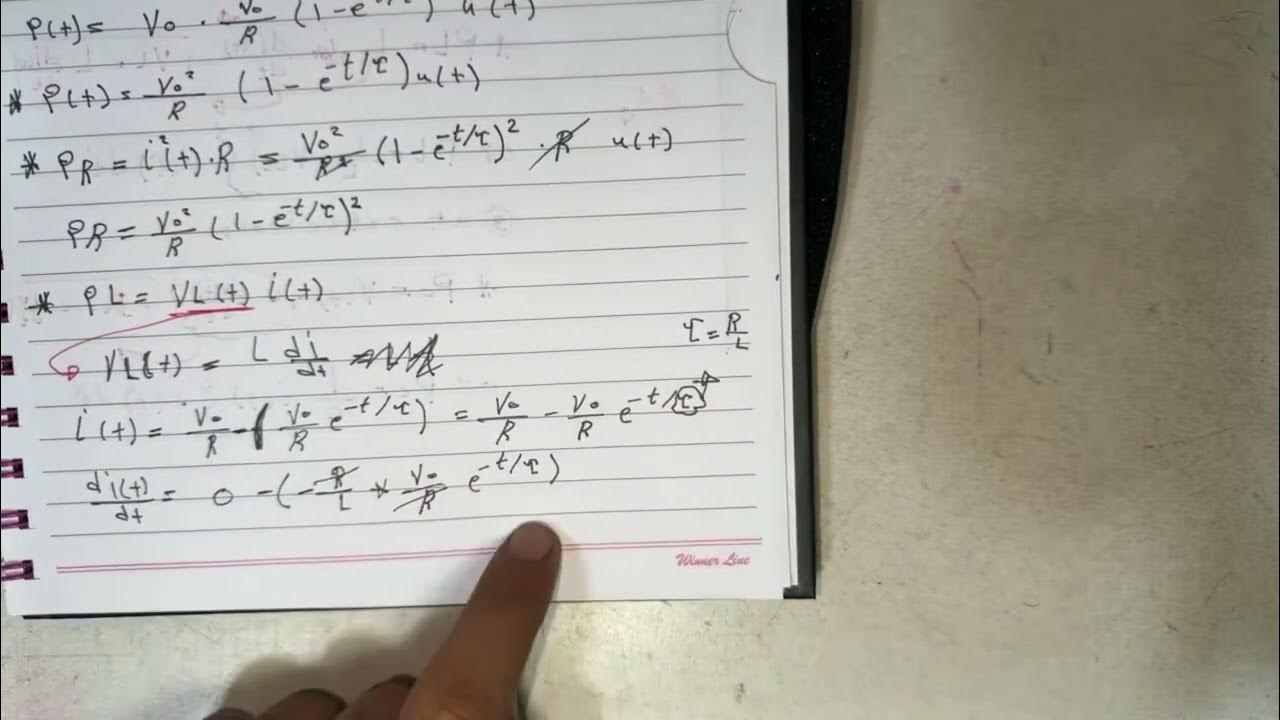 P(t) = V₀ · V₀/R (1 - e ) u(t)
* P(t) = V₀²/R (1 - e^{-t/τ}) u(t)
* P_R = i²(t)·R = V₀²/R² (1 - e^{-t/τ})² · R u(t)
P_R = V₀²/R (1 - e^{-t/τ})²
* P_L = V_L(t) i(t)
τ = R/L
V_L(t) = L di/dt =
i(t) = V₀/R - ( V₀/R e^{-t/τ} ) = V₀/R - V₀/R e^{-t/τ}
di(t)/dt = 0 - (- R/L * V₀/R e^{-t/τ} )
Winner Line